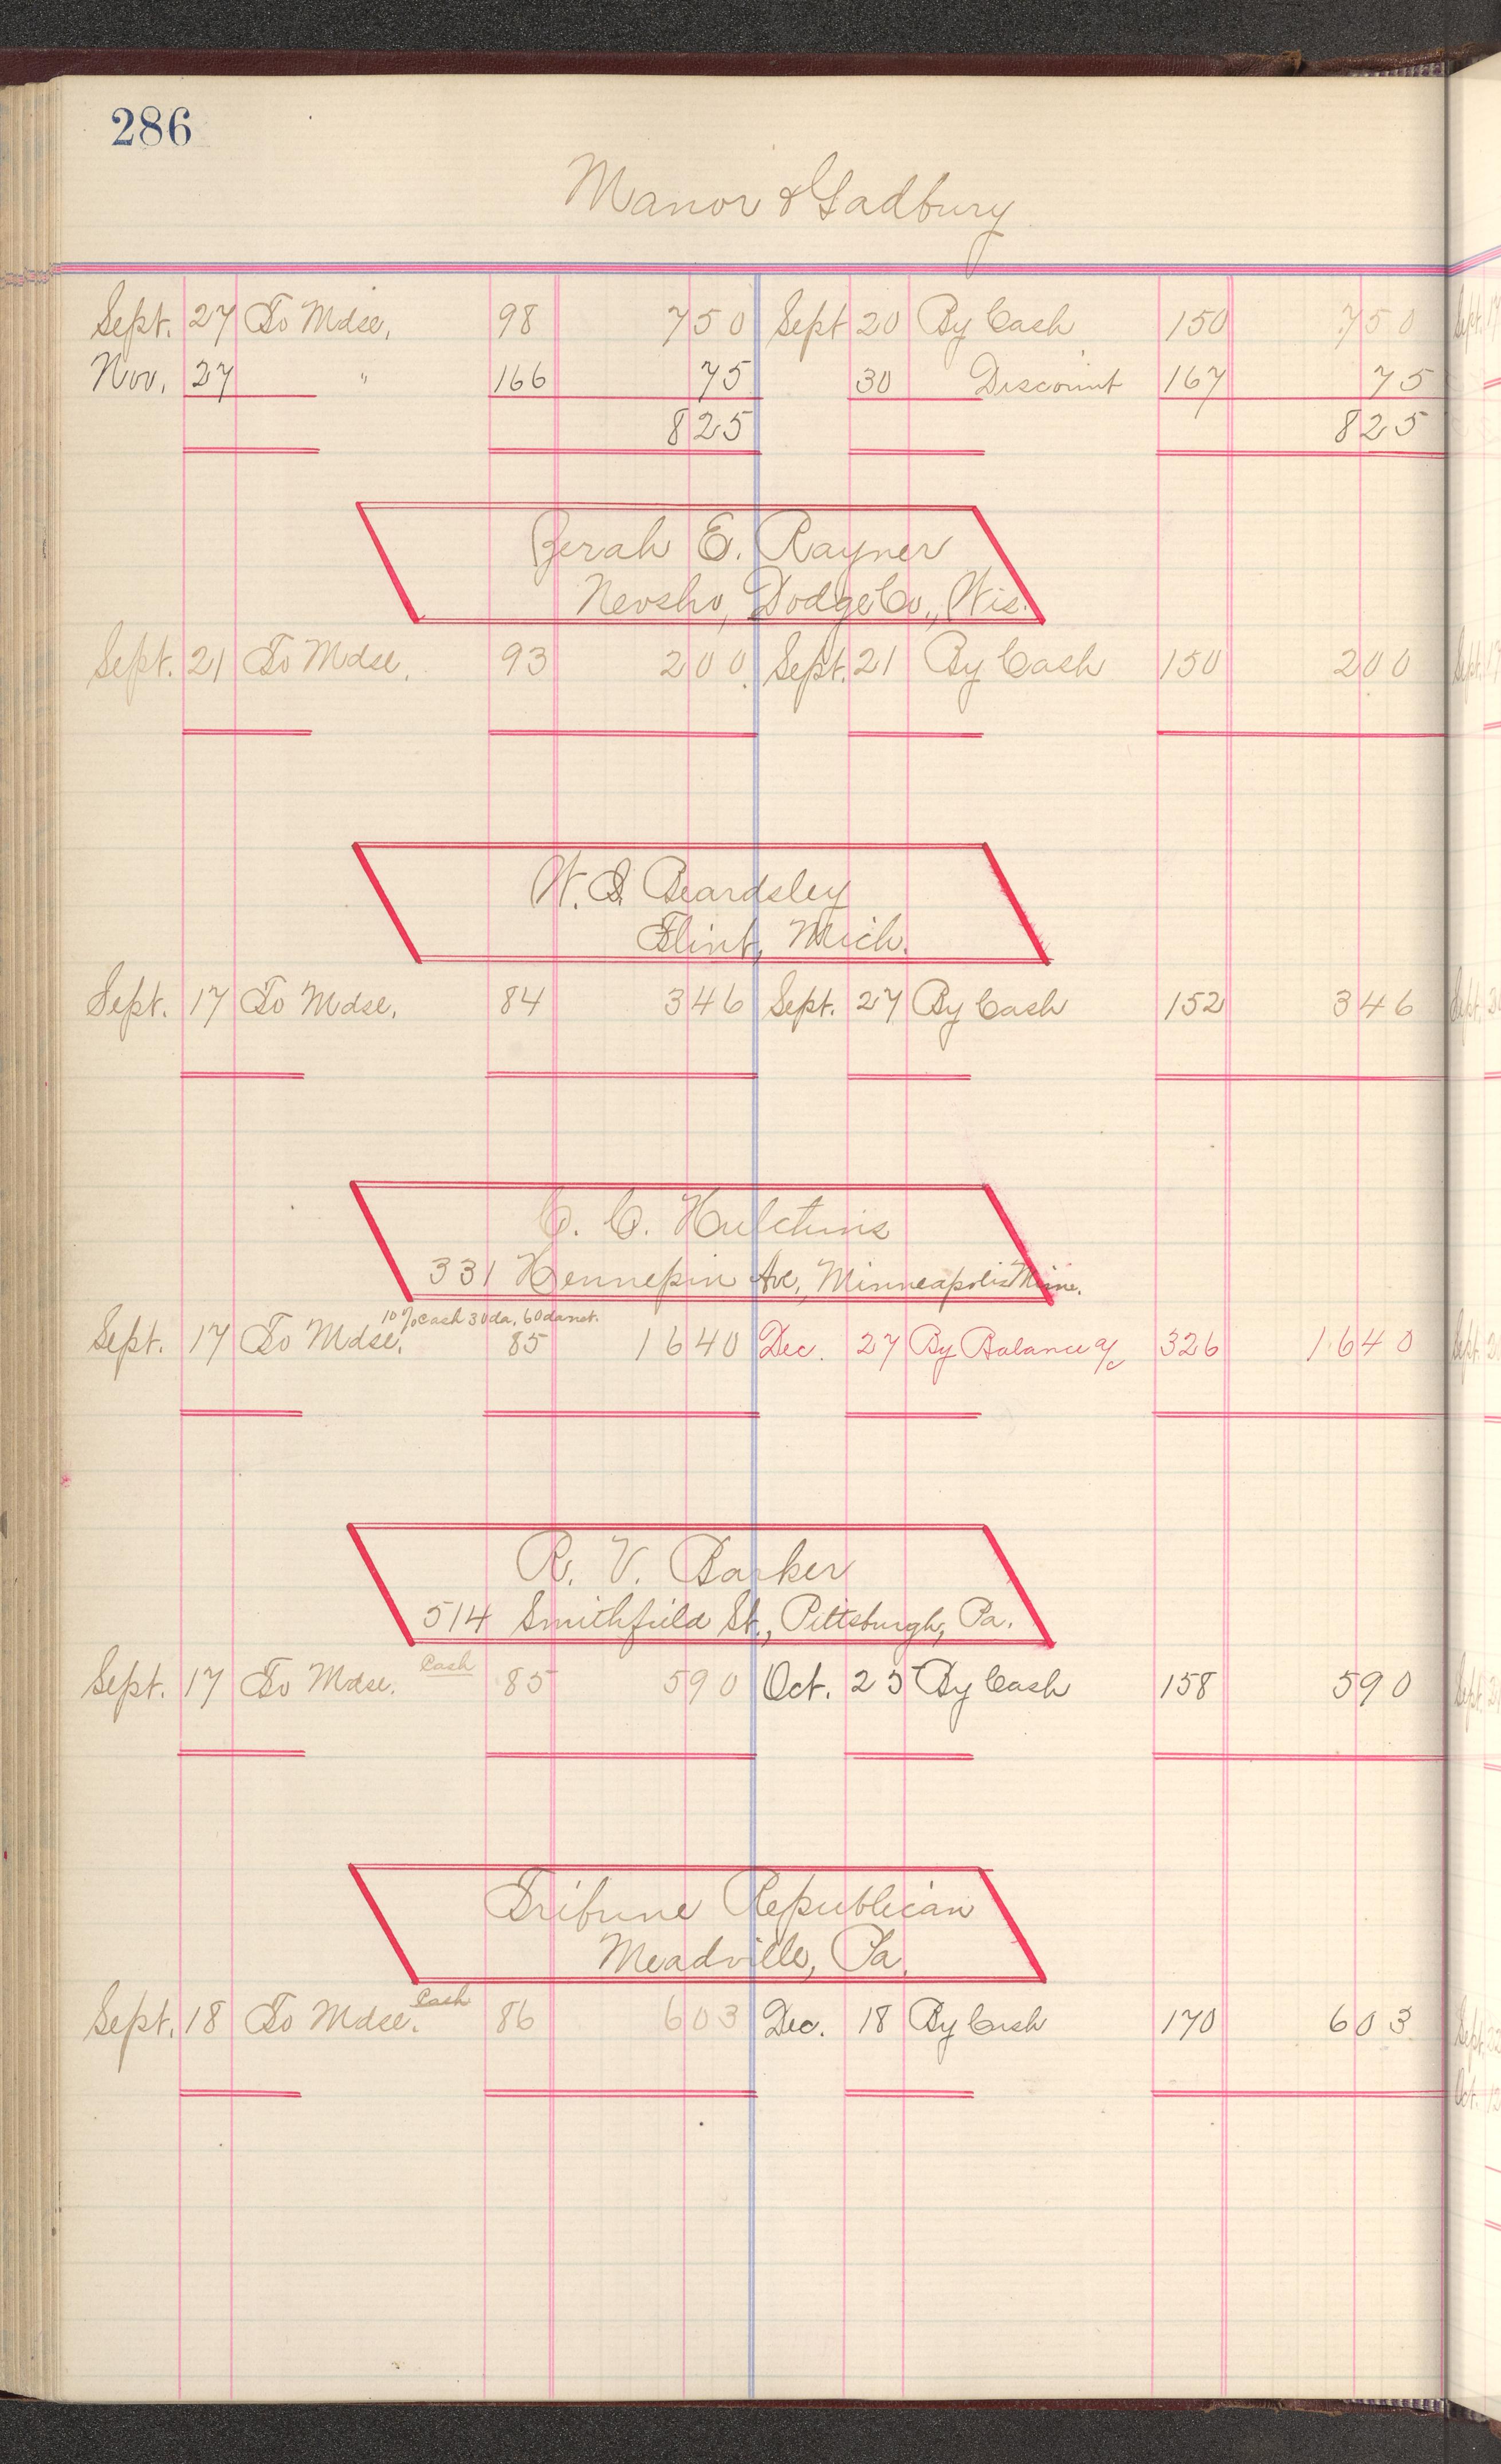 286
Manor & Gadbury
Sept. 27 To Mdse, 98 7 50 Sept 20 By Cash 150 7 50
Nov. 27 " 166 75 30 Discount 167 75
8 25 8 25
Zerah E. Rayner
Neosho, Dodge Co., Wis.
Sept. 21 To Mdse, 93 2 00 Sept. 21 By Cash 150 2 00
W. S. Beardsley
Flint, Mich.
Sept. 17 To Mdse, 84 3 46 Sept. 27 By Cash 152 3 46
C. C. Hutchins
331 Hennepin Ave, Minneapolis Minn.
10% Cash 30 da, 60 da net.
Sept. 17 To Mdse, 85 16 40 Dec. 27 By Balance a/c 326 16 40
R. V. Barker
514 Smithfield St., Pittsburgh, Pa.
Sept. 17 To Mdse. Cash 85 5 90 Oct. 25 By Cash 158 5 90
Tribune Republican
Meadville, Pa.
Sept. 18 To Mdse. Cash 86 6 03 Dec. 18 By Cash 170 6 03